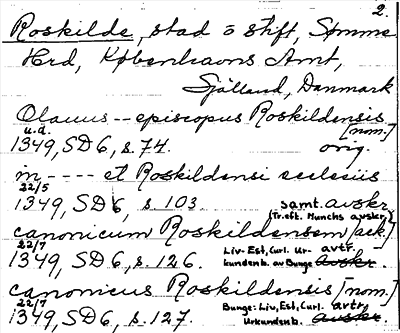 2.
Roskilde, stad o stift, Sømme
Hrd, Københavns Amt,
Sjölland, Danmark
Olauus -- episcopus Roskildensis
[nom.]
u.d.
1349, SD6, s. 74. orig.
in ---- et Roskildensi ecclesiis
22/5
1349, SD6, s. 103. samt. avskr.
(Tr. eft. Munchs avskr.)
canonicum Roskildensem [ack.]
22/7
1349, SD6, s. 126. Liv-Est, Curl. Ur- avtr.
kundenb. av Bunge avskr.
canonicus Roskildensis [nom.]
22/7
1349, SD6, s. 127. Bunge: Liv, Est, Curl. avtr.
Urkundenb. avskr.